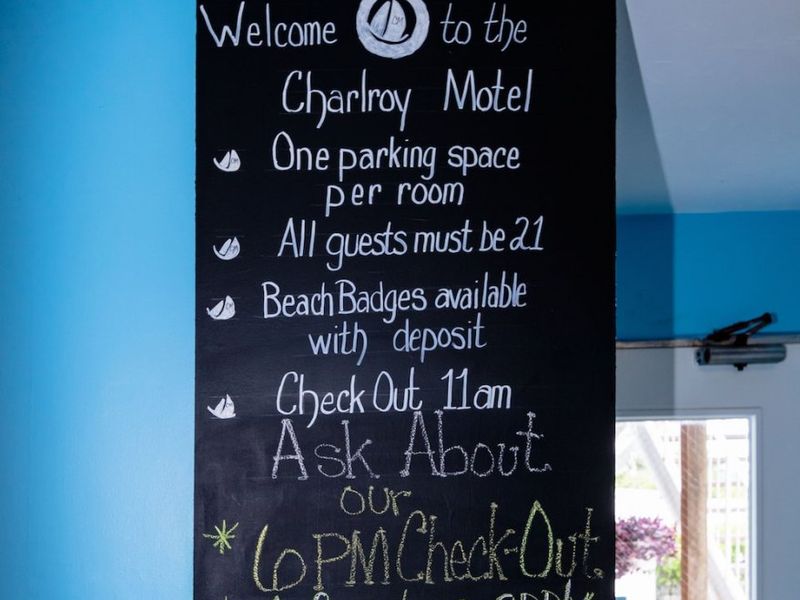 Welcome to the
Charlroy Motel
One parking space
per room
All guests must be 21
Beach Badges available
with deposit
Check Out 11am
Ask About
our
* 6PM Check-Out